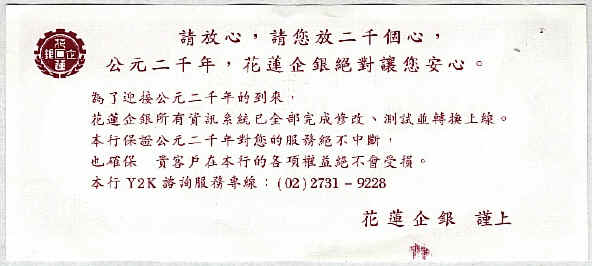 花企銀蓮
請放心，請您放二千個心，
公元二千年，花蓮企銀絕對讓您安心。
為了迎接公元二千年的到來，
花蓮企銀所有資訊系統已全部完成修改、測試並轉換上線。
本行保證公元二千年對您的服務絕不中斷，
也確保　貴客戶在本行的各項權益絕不會受損。
本行Y2K諮詢服務專線：(02)2731-9228
花蓮企銀　謹上